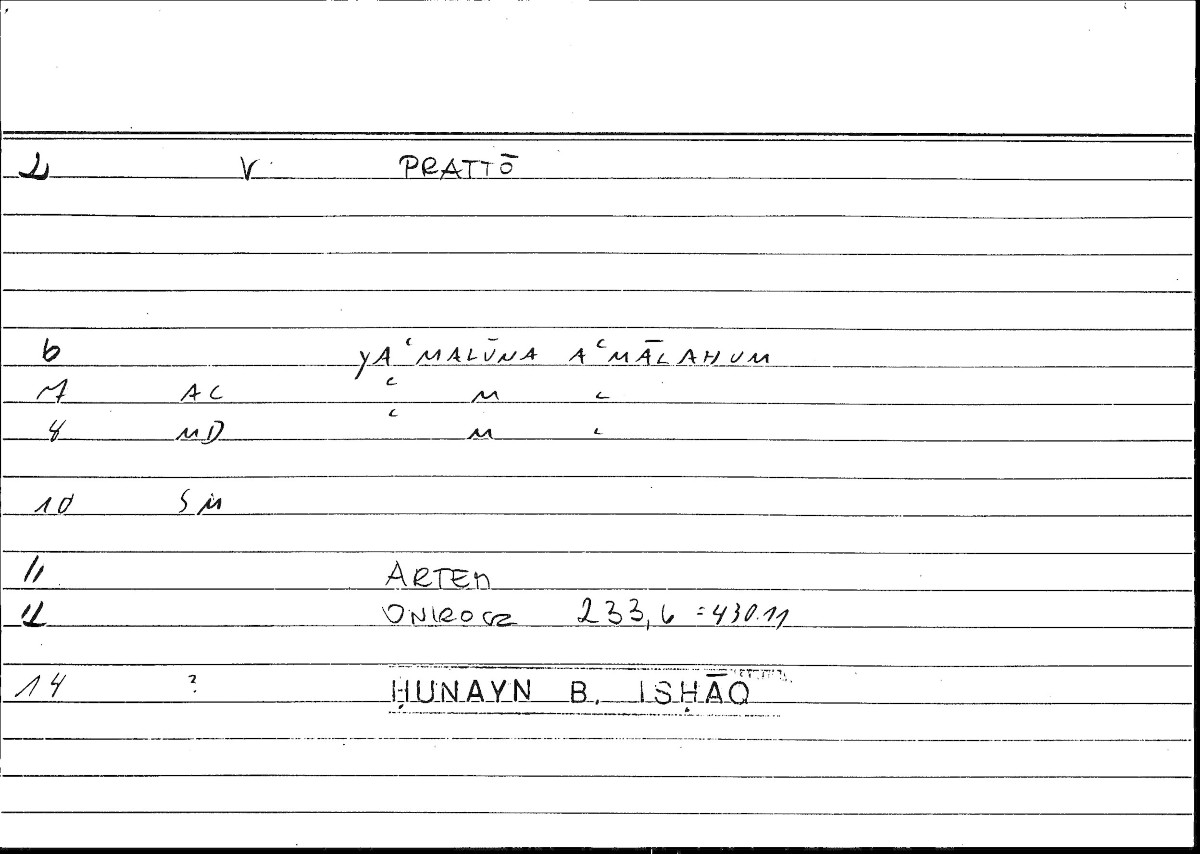 2 V. PRATTŌ
6 YAʿMALŪNA AʿMĀLAHUM
7 AC ʿ M ʿ
8 MD ʿ M ʿ
10 SM
11 ARTEM
12 ONIROCR 233,6 = 430.11
14 ? ḤUNAYN B. ISḤĀQ